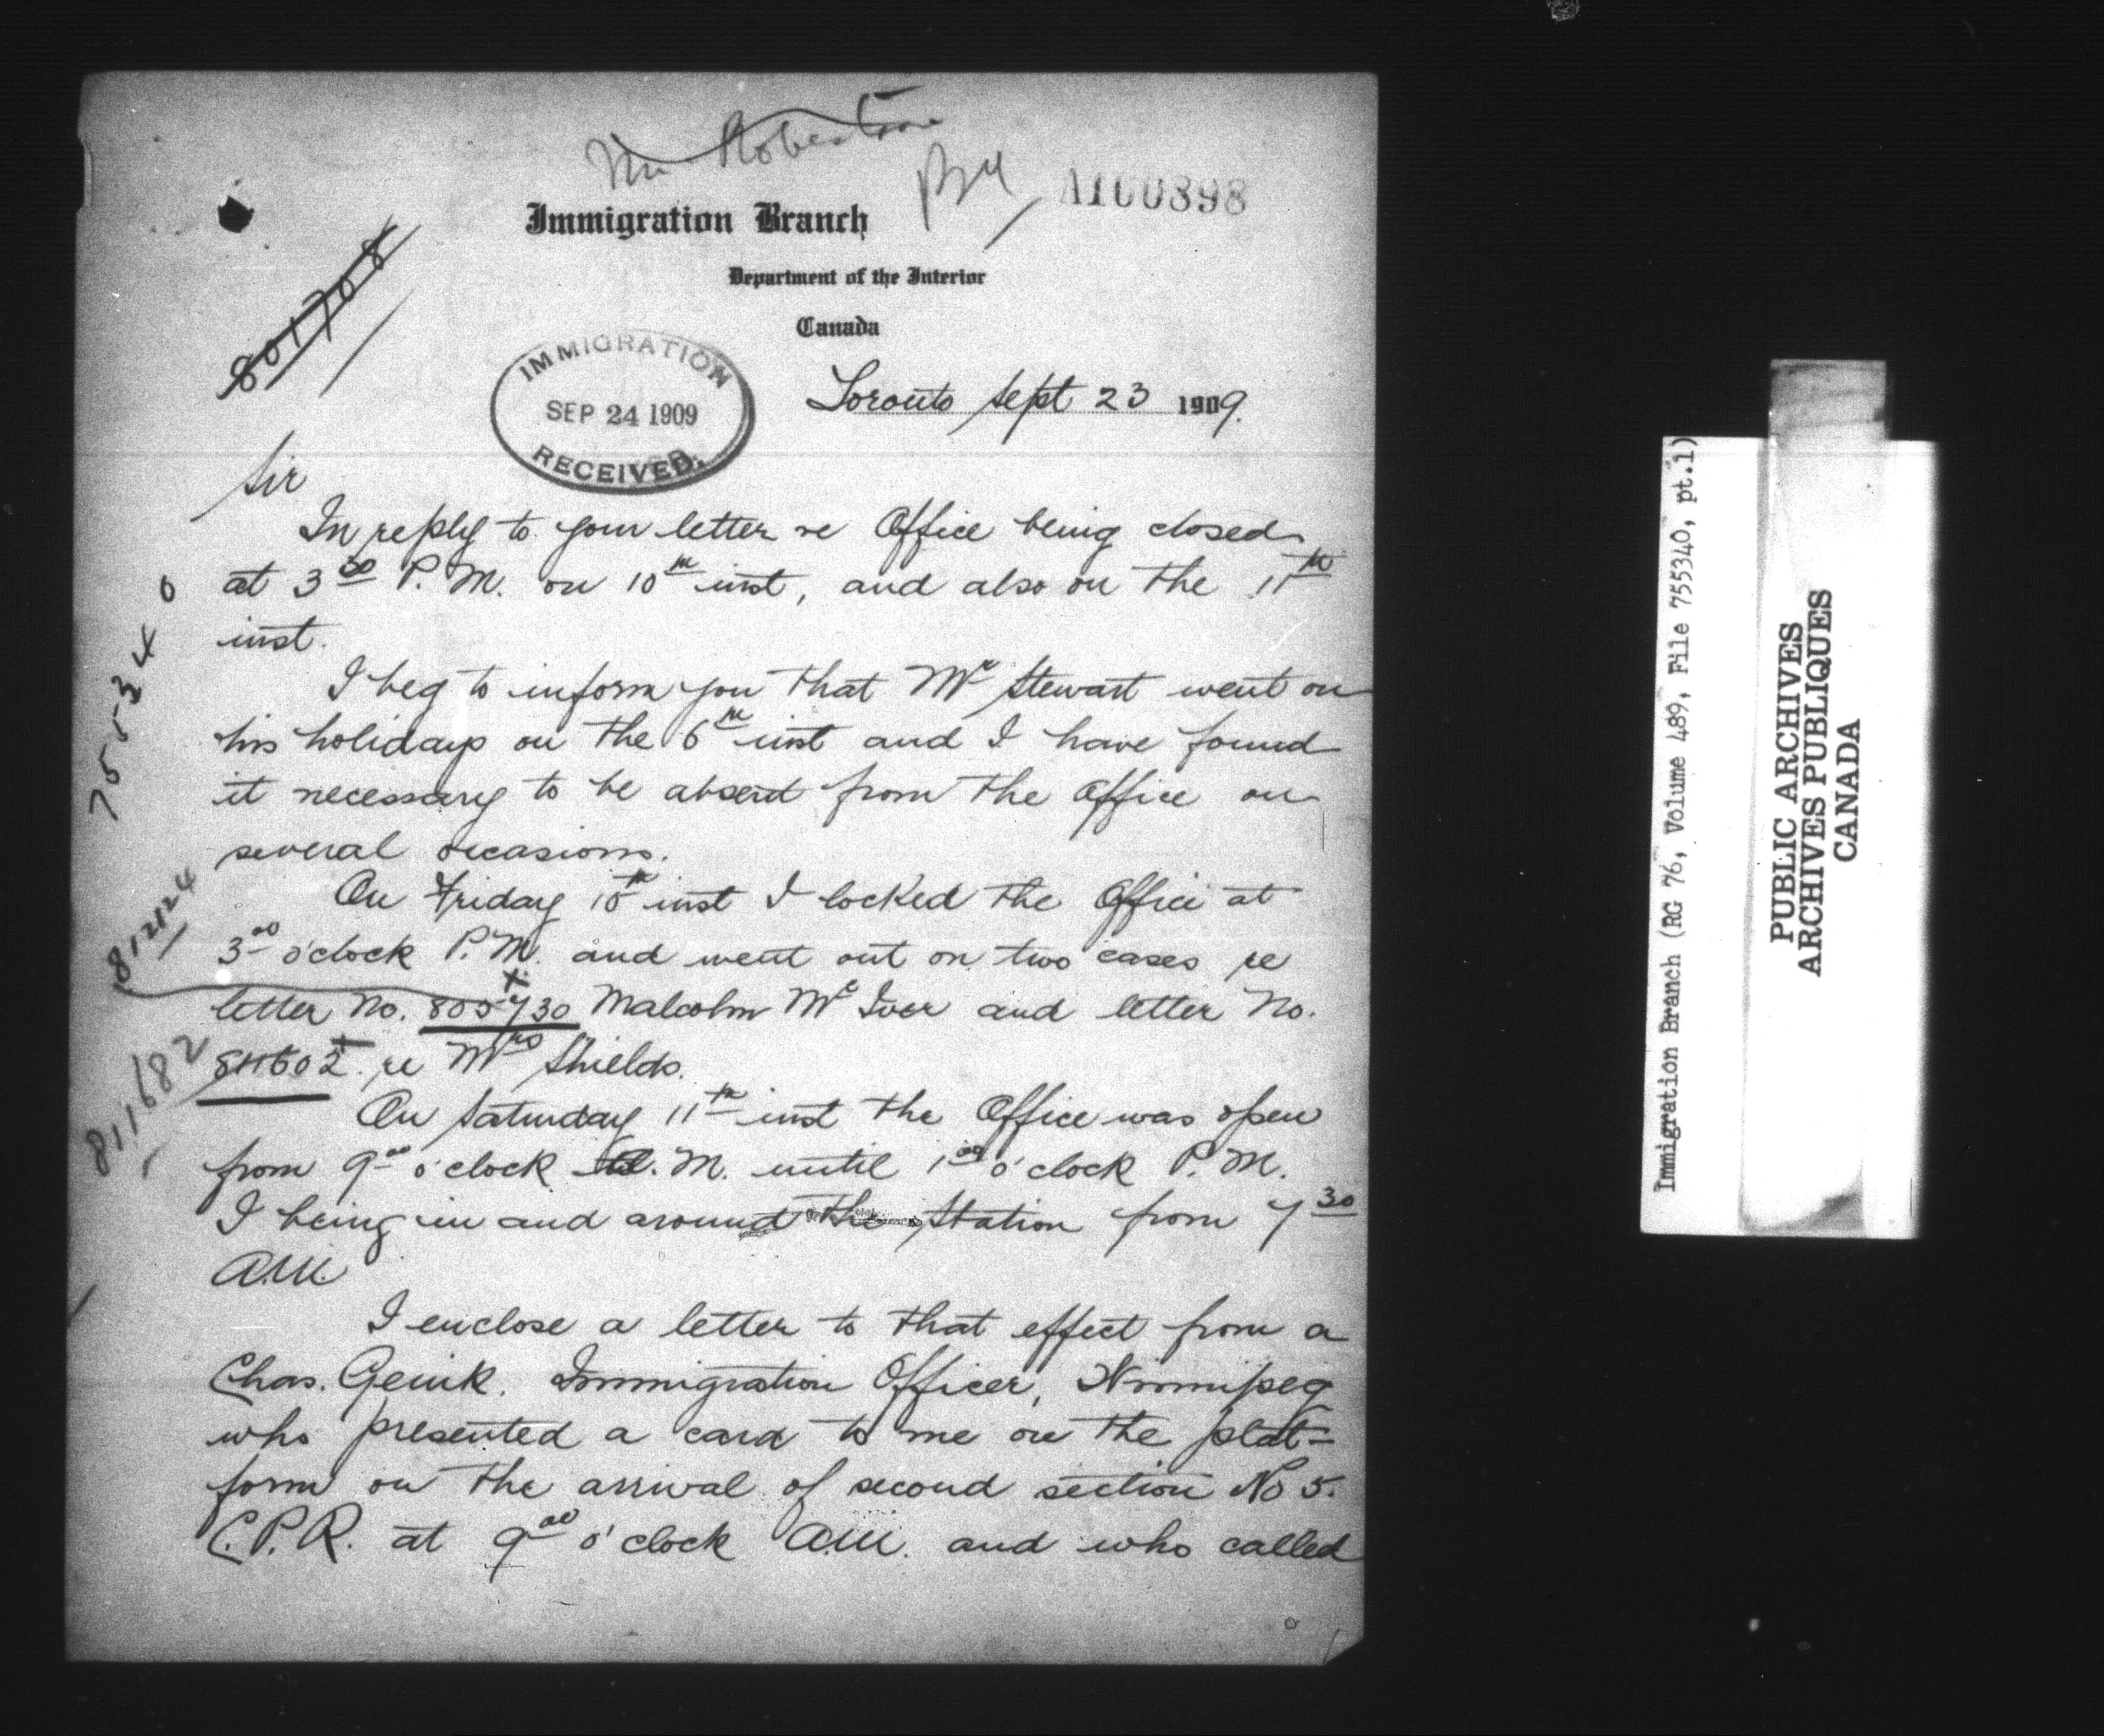 Mr Robertson
A100898
Immigration Branch
Department of the Interior
Canada
801708
IMMIGRATION
SEP 24 1909
RECEIVED.
Toronto Sept 23 1909.
Sir
In reply to your letter re Office being closed
at 3 00 P.M. on 10th inst, and also on the 11th
inst.
755340
I beg to inform you that Mr Stewart went on
his holidays on the 6th inst and I have found
it necessary to be absent from the Office on
several occasions.
812124
On Friday 10th inst I locked the Office at
3 00 o'clock P.M. and went out on two cases re
letter No. 805730 Malcolm McIver and letter No.
811602 re Mrs Shields.
811682
On Saturday 11th inst the Office was open
from 9 00 o'clock A.M. until 1 00 o'clock P.M.
I being in and around the Station from 7 30
A.M.
I enclose a letter to that effect from a
Chas. Genik. Immigration Officer, Winnipeg
who presented a card to me on the plat=
form on the arrival of second section No 5.
C.P.R. at 9 00 o'clock A.M. and who called
Immigration Branch (RG 76, Volume 489, File 755340, pt.1)
PUBLIC ARCHIVES
ARCHIVES PUBLIQUES
CANADA